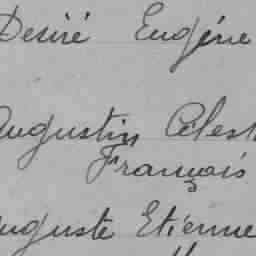 Desiré Eugéne
Augustin Célest
François
Auguste Etienne